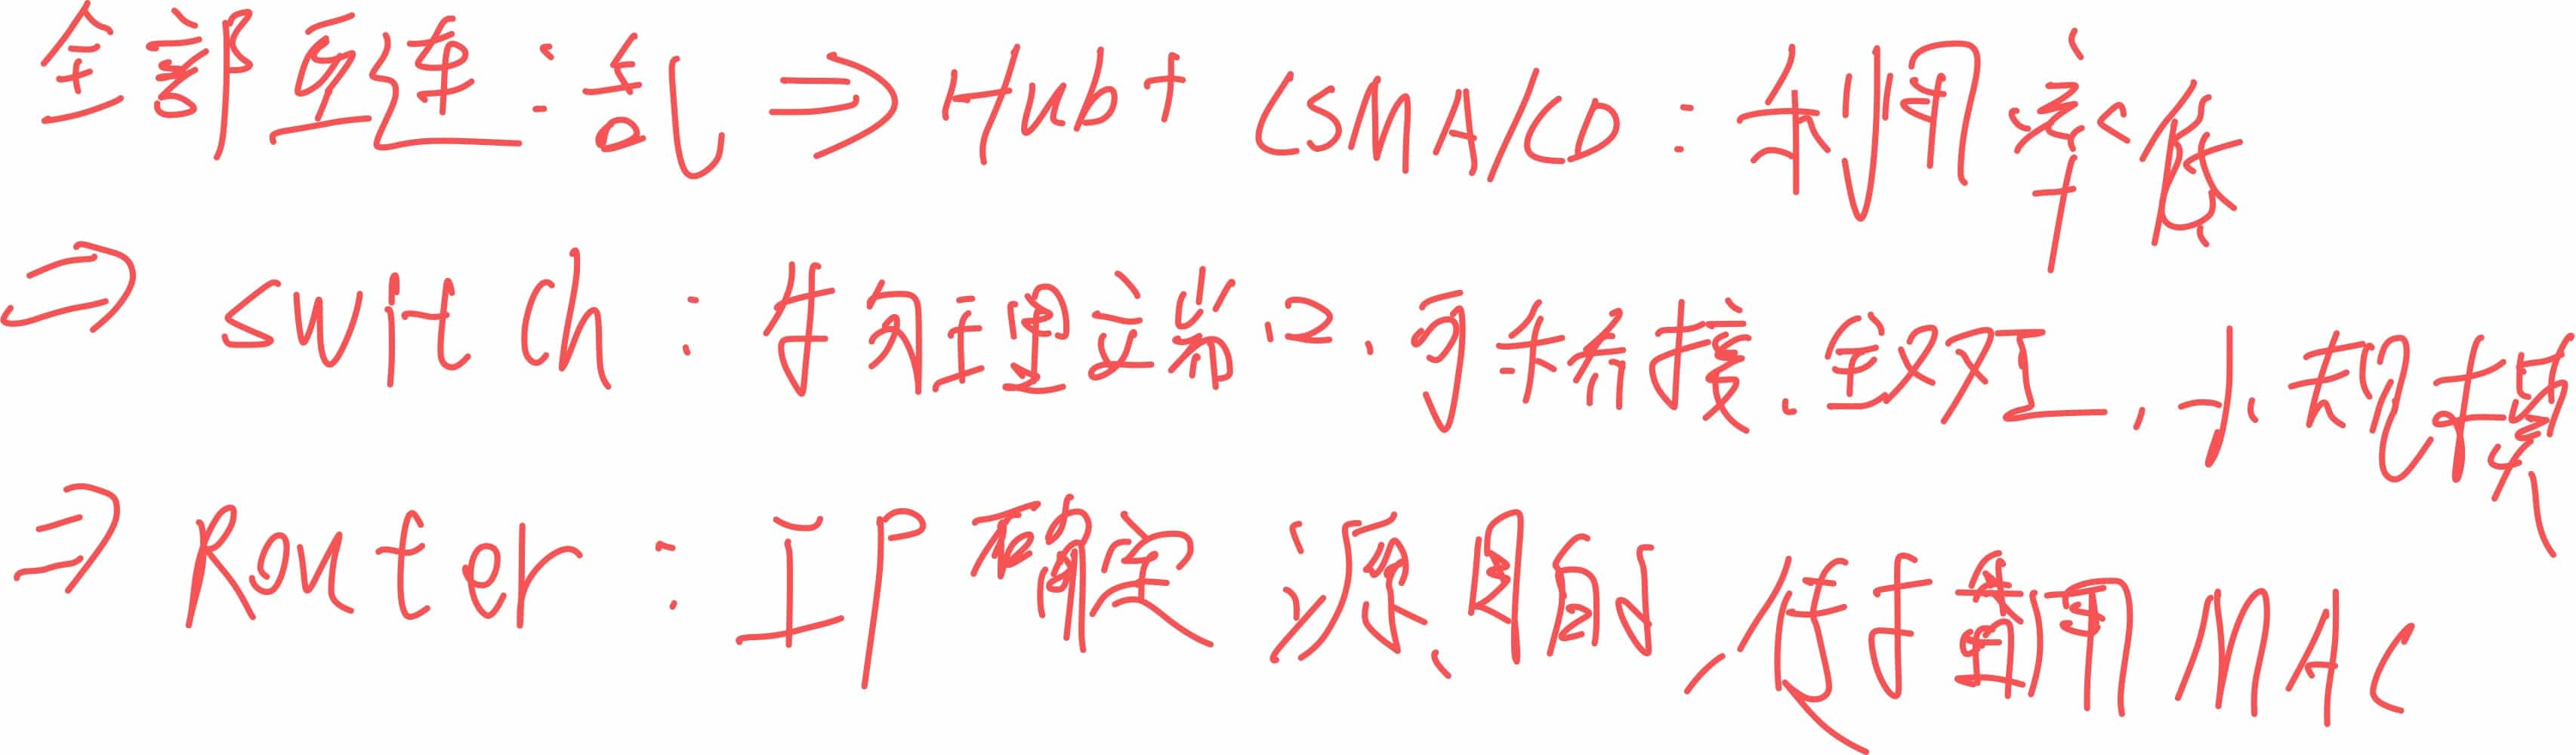 全部互连:乱⇒Hub+ CSMA/CD:利用率低
⇒ switch:物理端口、可桥接、全双工,小规模
⇒ Router:IP确定源、目的,传播用MAC